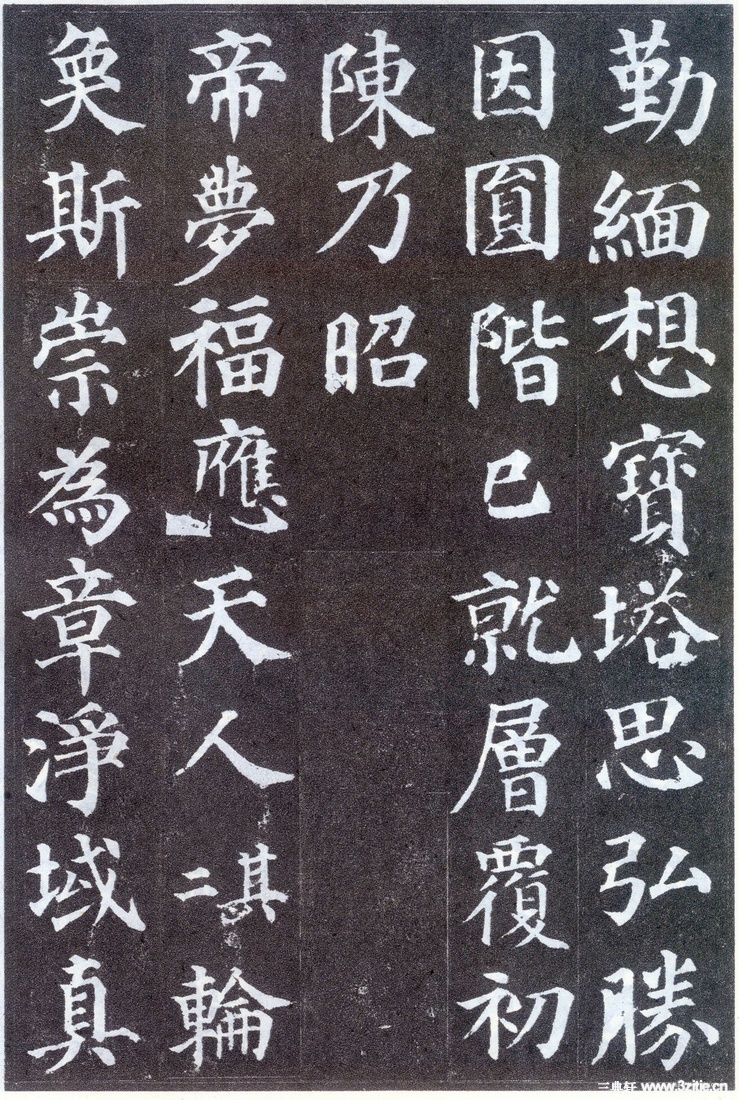 勤緬想寶塔思弘勝
因圓階已就層覆初
陳乃昭
帝夢福應天人其二輪
奐斯崇為章淨域真
三典轩 www.3zitie.cn